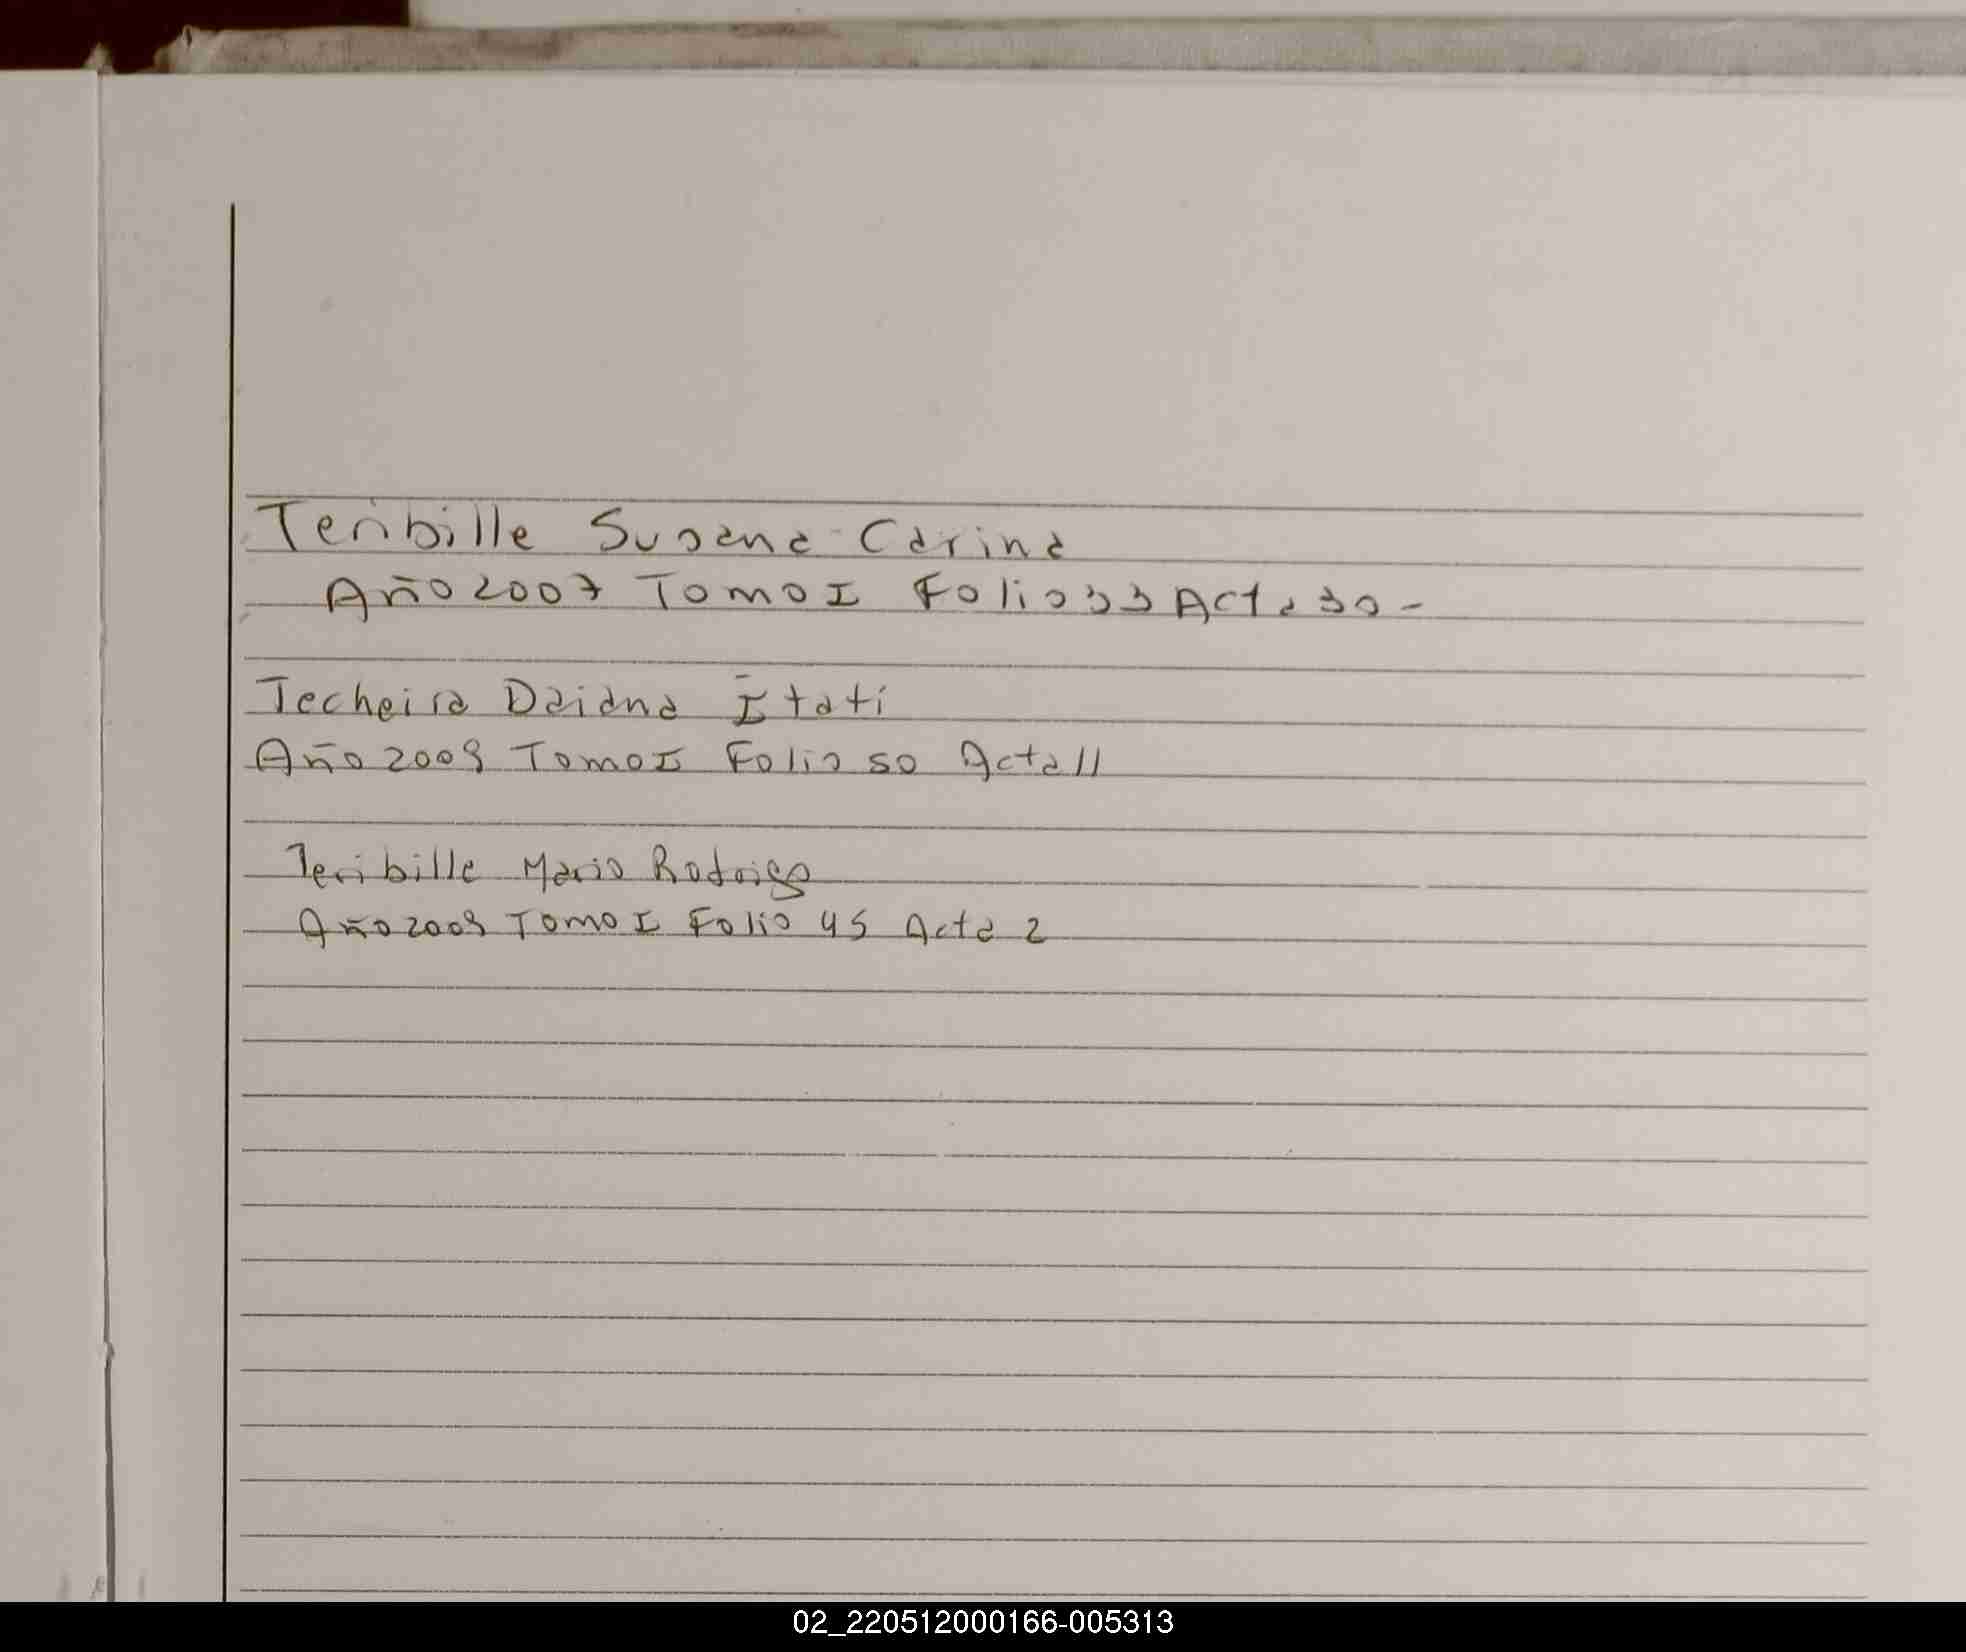 Teribille Susana Carina
Año 2007 Tomo I Folio 33 Acta 30 -
Techeira Daiana Itati
Año 2009 Tomo I Folio 50 Acta 11
Teribille Mario Rodrigo
Año 2009 Tomo I Folio 45 Acta 2
02_220512000166-005313